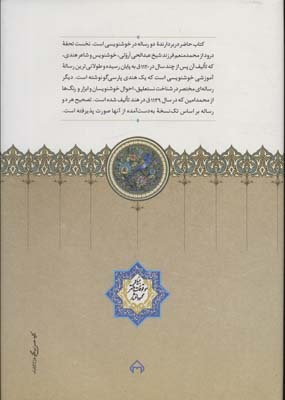 کتاب حاضر دربردارندهٔ دو رساله در خوشنویسی است. نخست تحفهٔ
درود از محمدمنعم فرزند شیخ عبدالحی آروَلی، خوشنویس و شاعر هندی،
که تألیف آن پس از چند سال در ۱۱۴۰ق به پایان رسیده و طولانی‌ترین رسالهٔ
آموزشی خوشنویسی است که یک هندی پارسی‌گو نوشته است. دیگر
رساله‌ای مختصر در شناخت نستعلیق، احوال خوشنویسان و ابزار و رنگ‌ها
از محمدامین که در سال ۱۱۳۹ق در هند تألیف شده است. تصحیح هر دو
رساله بر اساس تک‌نسخهٔ به‌دست‌آمده از آنها صورت پذیرفته است.